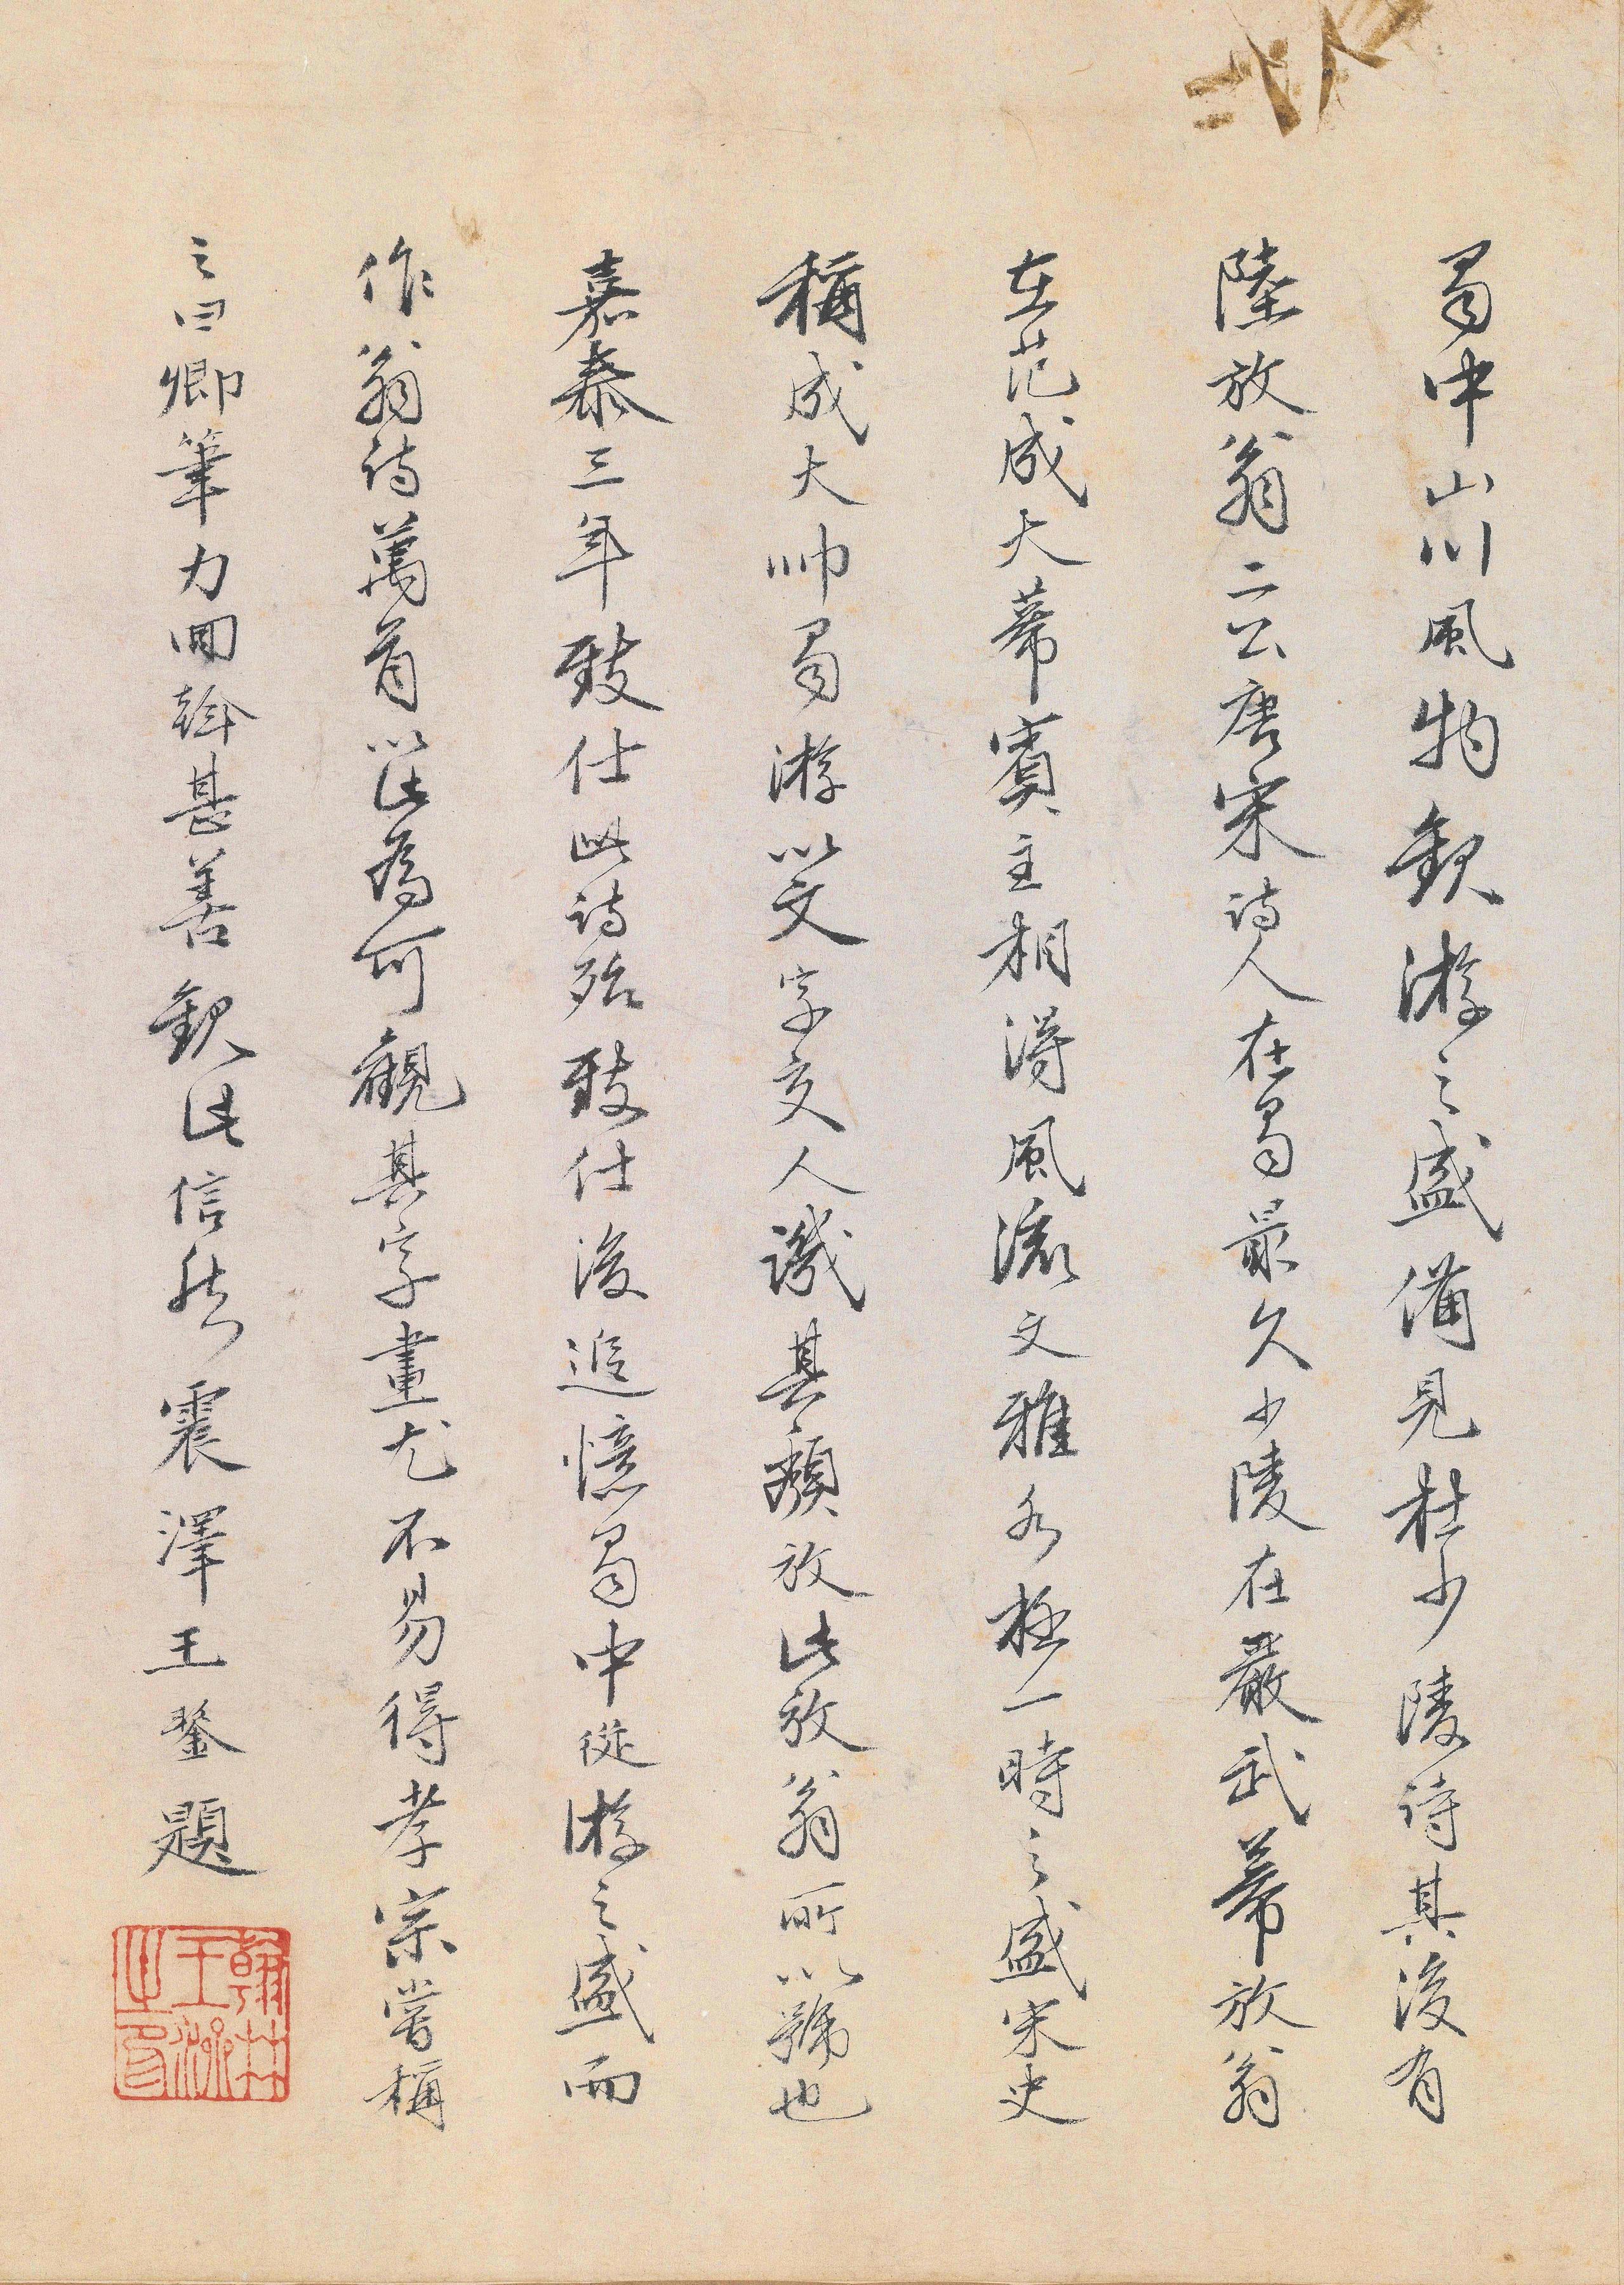 蜀中山川風物觀游之盛備見杜少陵詩其後有
陸放翁二公唐宋詩人在蜀最久少陵在嚴武幕放翁
在范成大幕賓主相得風流文雅各極一時之盛宋史
稱成大帥蜀游以文字交人譏其頹放此放翁所以號也
嘉泰三年致仕此詩殆致仕後追憶蜀中從游之盛而
作翁詩萬首以此為可觀其字畫尤不易得孝宗嘗稱
之曰卿筆力回斡甚善觀此信然震澤王鏊題